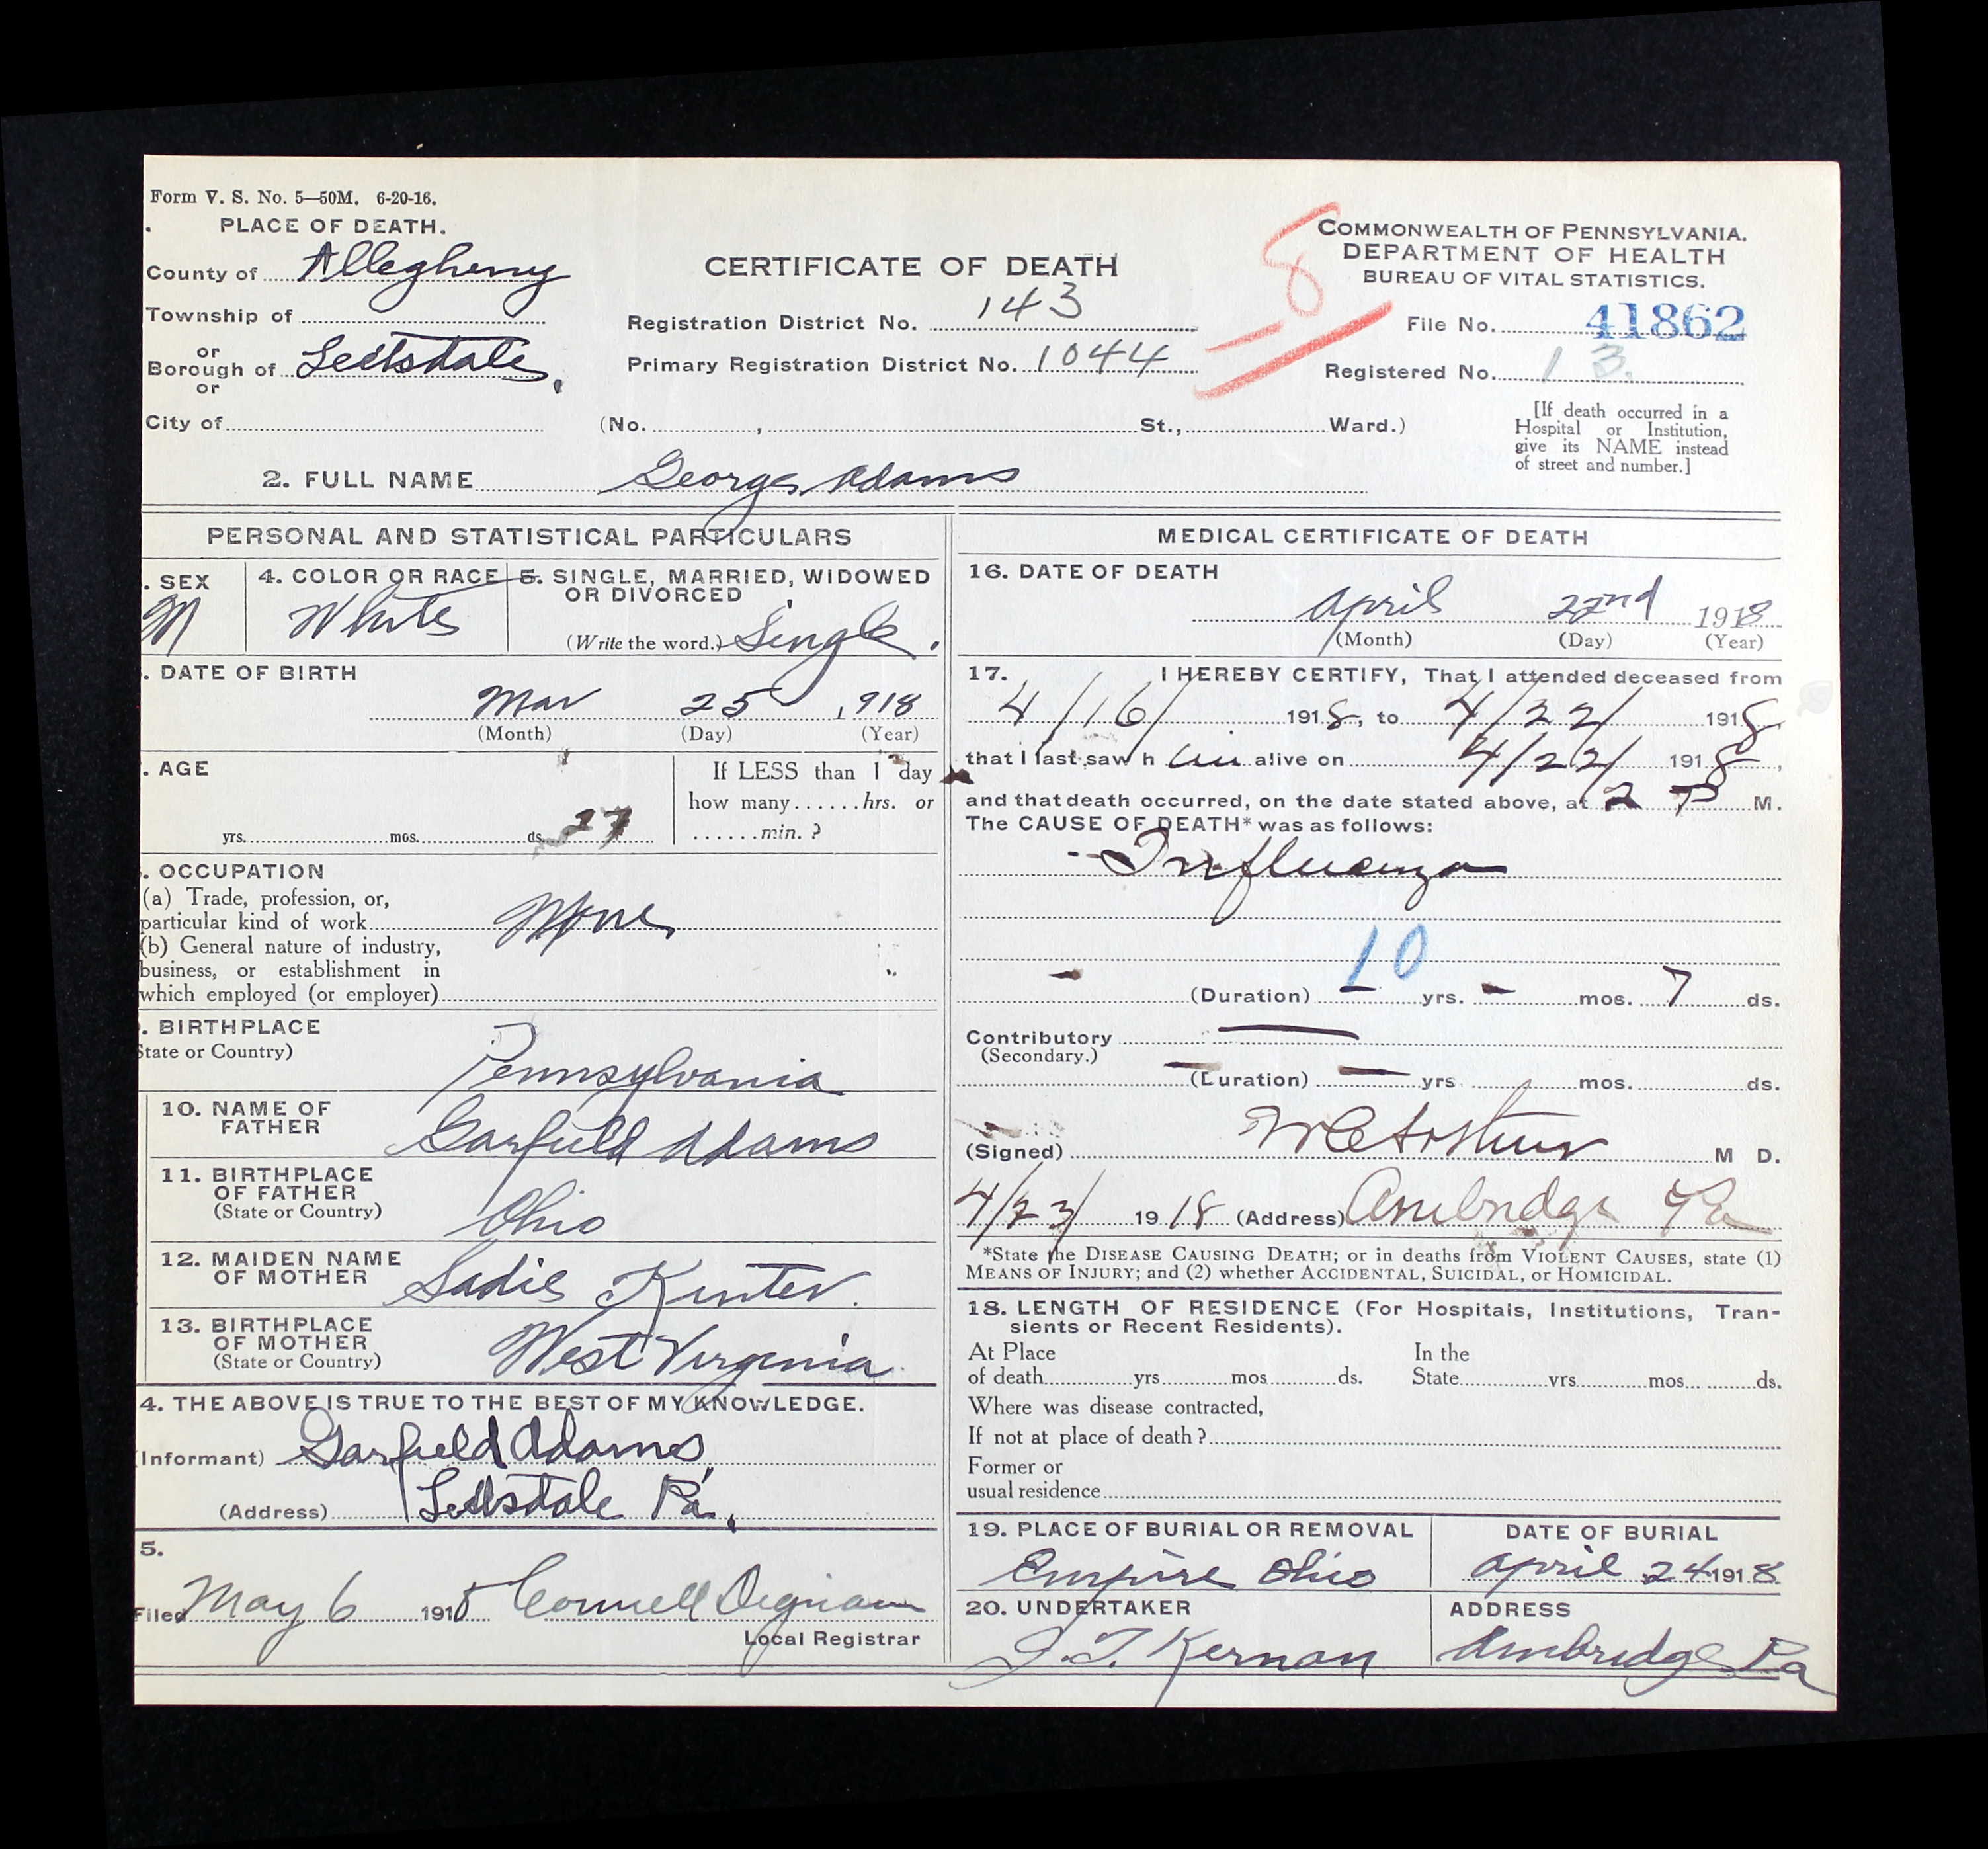 Form V. S. No. 5—50M. 6-20-16.
PLACE OF DEATH.
County of Allegheny
Township of
or
Borough of Leetsdale,
or
City of
CERTIFICATE OF DEATH
Registration District No. 143
Primary Registration District No. 1044
(No. , St., Ward.)
8
COMMONWEALTH OF PENNSYLVANIA.
DEPARTMENT OF HEALTH
BUREAU OF VITAL STATISTICS.
File No. 41862
Registered No. 13.
[If death occurred in a
Hospital or Institution,
give its NAME instead
of street and number.]
2. FULL NAME George Adams
PERSONAL AND STATISTICAL PARTICULARS
. SEX
M
4. COLOR OR RACE
White
5. SINGLE, MARRIED, WIDOWED
OR DIVORCED
(Write the word.) Single.
. DATE OF BIRTH
Mar 25, 1918
(Month) (Day) (Year)
. AGE
yrs. mos. ds. 27
If LESS than 1 day
how many......hrs. or
......min. ?
. OCCUPATION
(a) Trade, profession, or,
particular kind of work None
(b) General nature of industry,
business, or establishment in
which employed (or employer)
. BIRTHPLACE
State or Country)
Pennsylvania
10. NAME OF
FATHER
Garfield Adams
11. BIRTHPLACE
OF FATHER
(State or Country)
Ohio
12. MAIDEN NAME
OF MOTHER
Sadie Kinter.
13. BIRTHPLACE
OF MOTHER
(State or Country)
West Virginia
4. THE ABOVE IS TRUE TO THE BEST OF MY KNOWLEDGE.
(Informant) Garfield Adams
(Address) Leetsdale Pa.
5.
Filed May 6 1918 Connell Dignam
Local Registrar
MEDICAL CERTIFICATE OF DEATH
16. DATE OF DEATH
April 22nd 1918
(Month) (Day) (Year)
17. I HEREBY CERTIFY, That I attended deceased from
4/16/ 1918, to 4/22/ 1918
that I last saw h im alive on 4/22/ 1918,
and that death occurred, on the date stated above, at 2 P M.
The CAUSE OF DEATH* was as follows:
Influenza
10
(Duration) — yrs. — mos. 7 ds.
Contributory —
(Secondary.)
(Duration) — yrs mos. ds.
(Signed) M D.
4/23/ 1918 (Address) Ambridge Pa
*State the DISEASE CAUSING DEATH; or in deaths from VIOLENT CAUSES, state (1)
MEANS OF INJURY; and (2) whether ACCIDENTAL, SUICIDAL, or HOMICIDAL.
18. LENGTH OF RESIDENCE (For Hospitals, Institutions, Tran-
sients or Recent Residents).
At Place In the
of death yrs mos ds. State yrs mos ds.
Where was disease contracted,
If not at place of death ?
Former or
usual residence
19. PLACE OF BURIAL OR REMOVAL
Empire Ohio
DATE OF BURIAL
April 24 1918
20. UNDERTAKER
J. T. Kernan
ADDRESS
Ambridge Pa